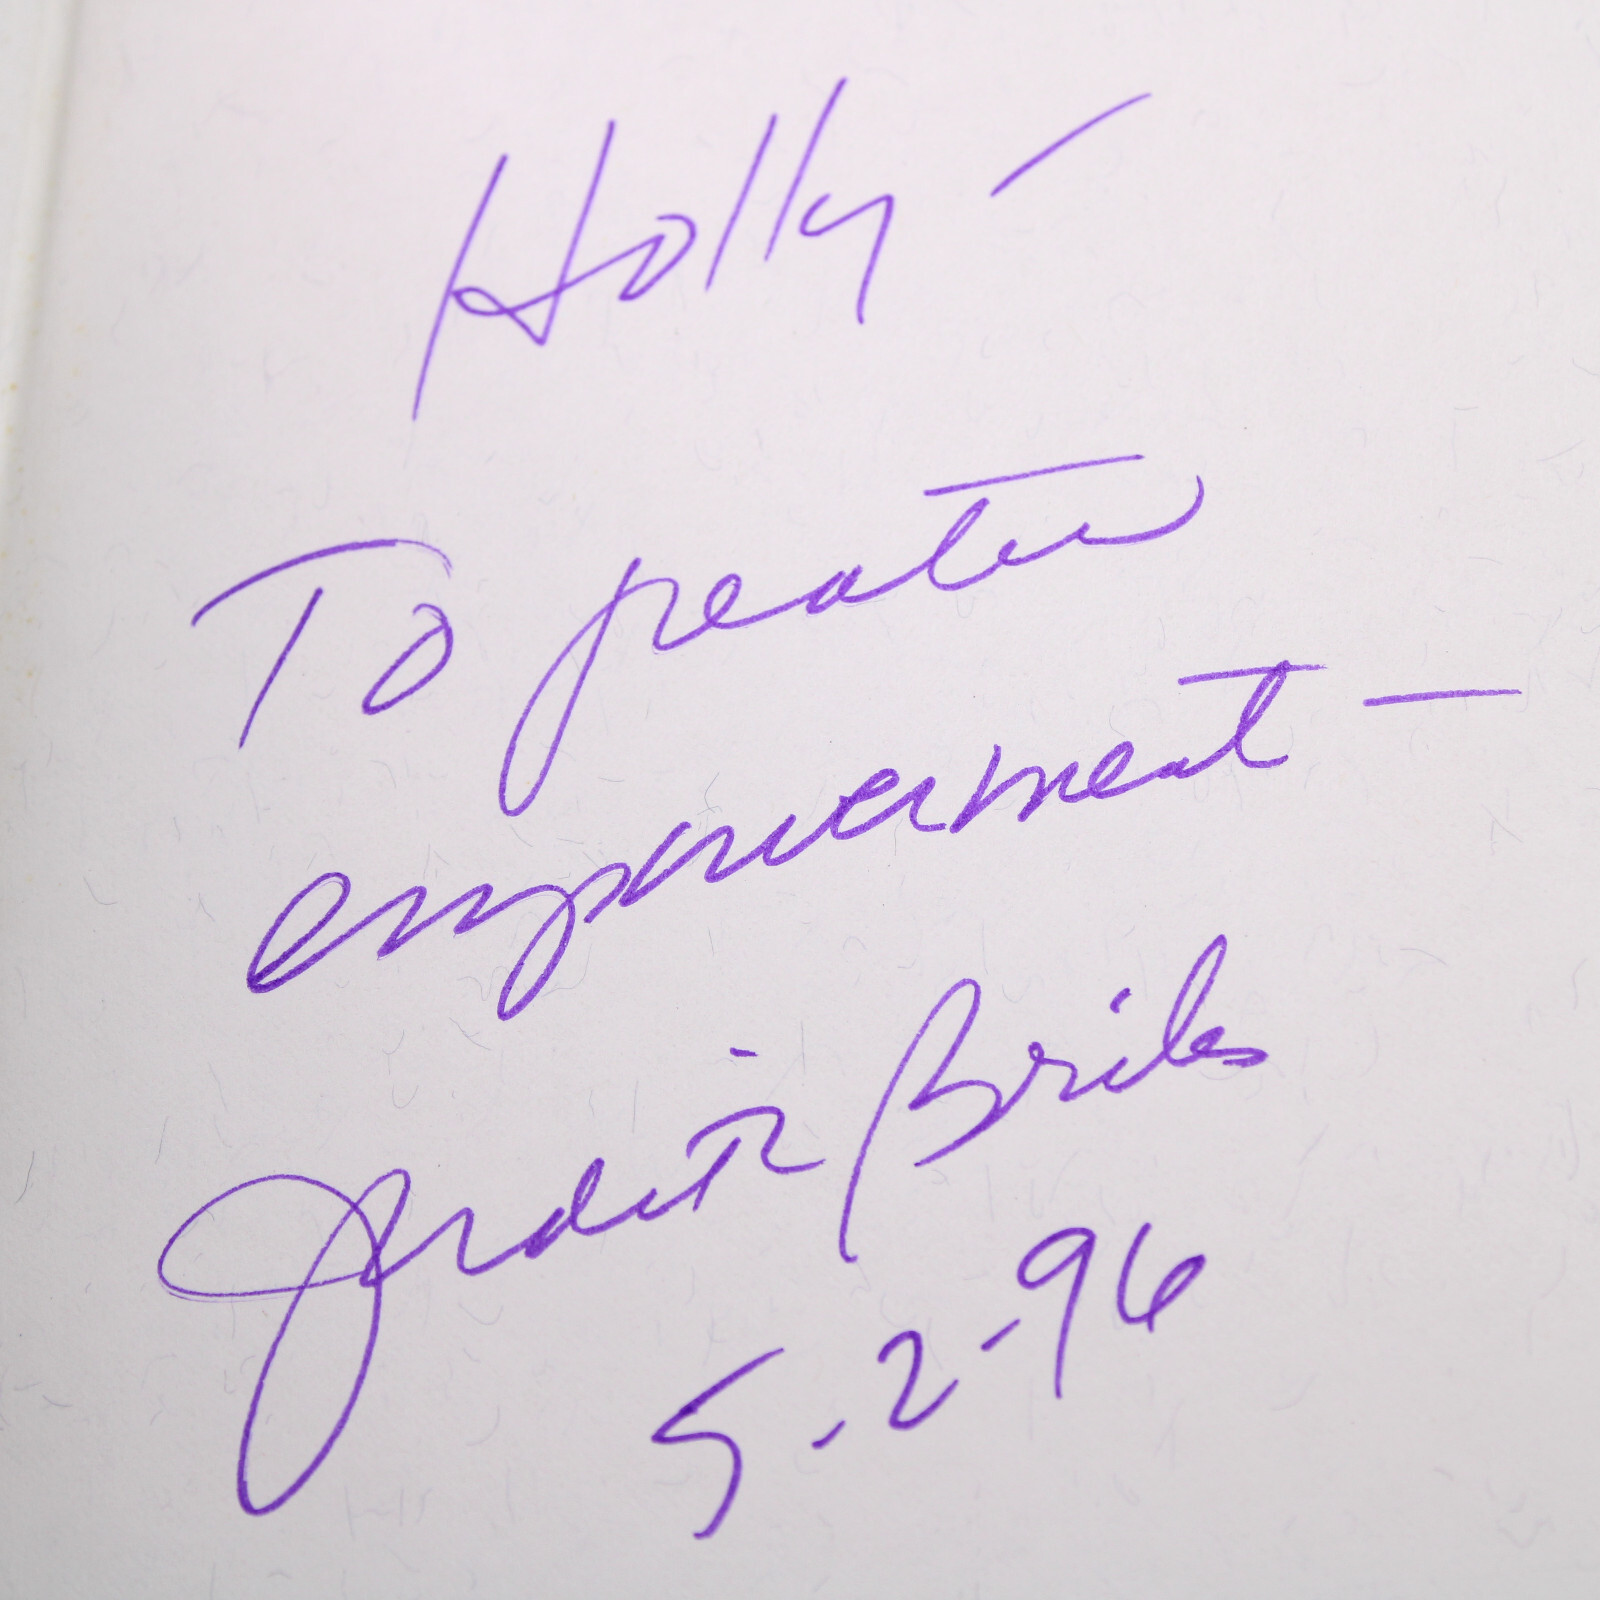 Holly –
To greater
empowerment –
Judith Briles
5-2-96